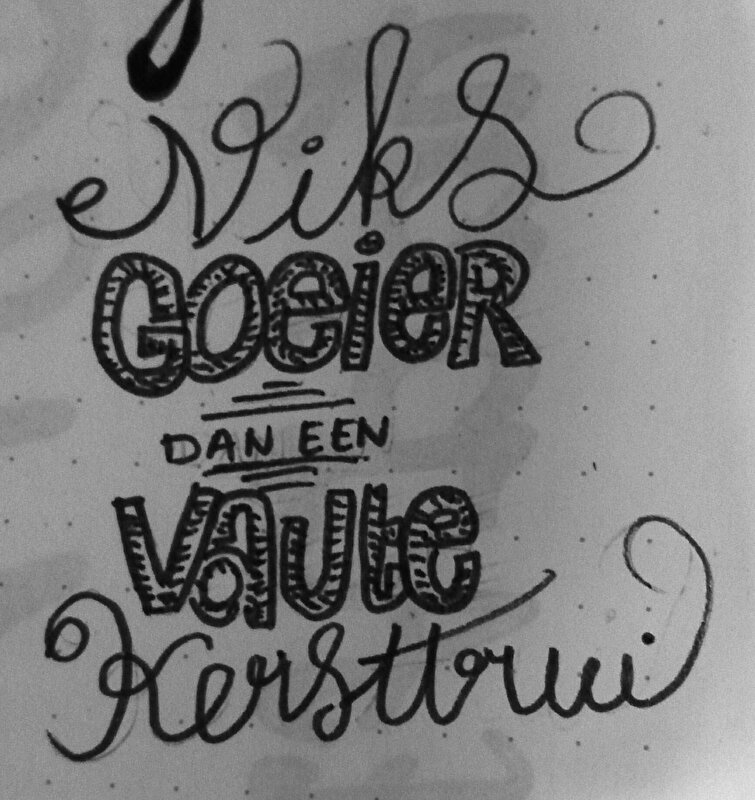 Niks
GOEIER
DAN EEN
VAUTE
Kersttrui